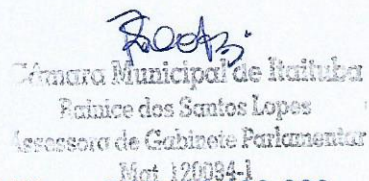 Câmara Municipal de Itaituba
dos Santos Lopes
Assessora de Gabinete Parlamentar
Mat 120034-1